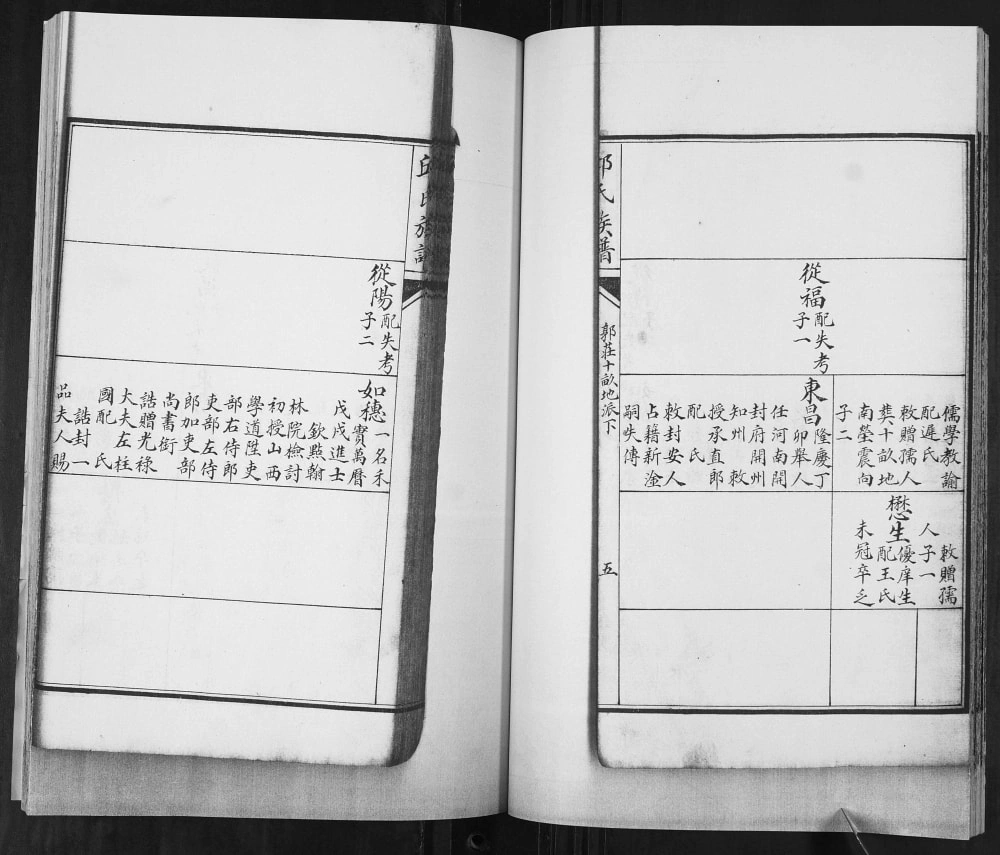 從福
配失考
子一
儒學教諭
配遲氏
敕贈孺人
葬十畝地
南塋震向
子二
東昌
隆慶丁
卯舉人
任河南開
封府開州
知州敕
授承直郎
配　氏
敕封安人
占籍新淦
嗣失傳
敕贈孺
人子一
懋生
優庠生
配王氏
未冠卒乏
邱氏族譜
郭莊十畝地派下
五
邱氏族譜
從陽
配失考
子二
如穗
一名禾
實萬曆
戊戌進士
欽點翰
林院檢討
初授山西
學道陞吏
部右侍郎
吏部左侍
郎加吏部
尚書銜
誥贈光祿
大夫左柱
國配　氏
誥封一
品夫人賜